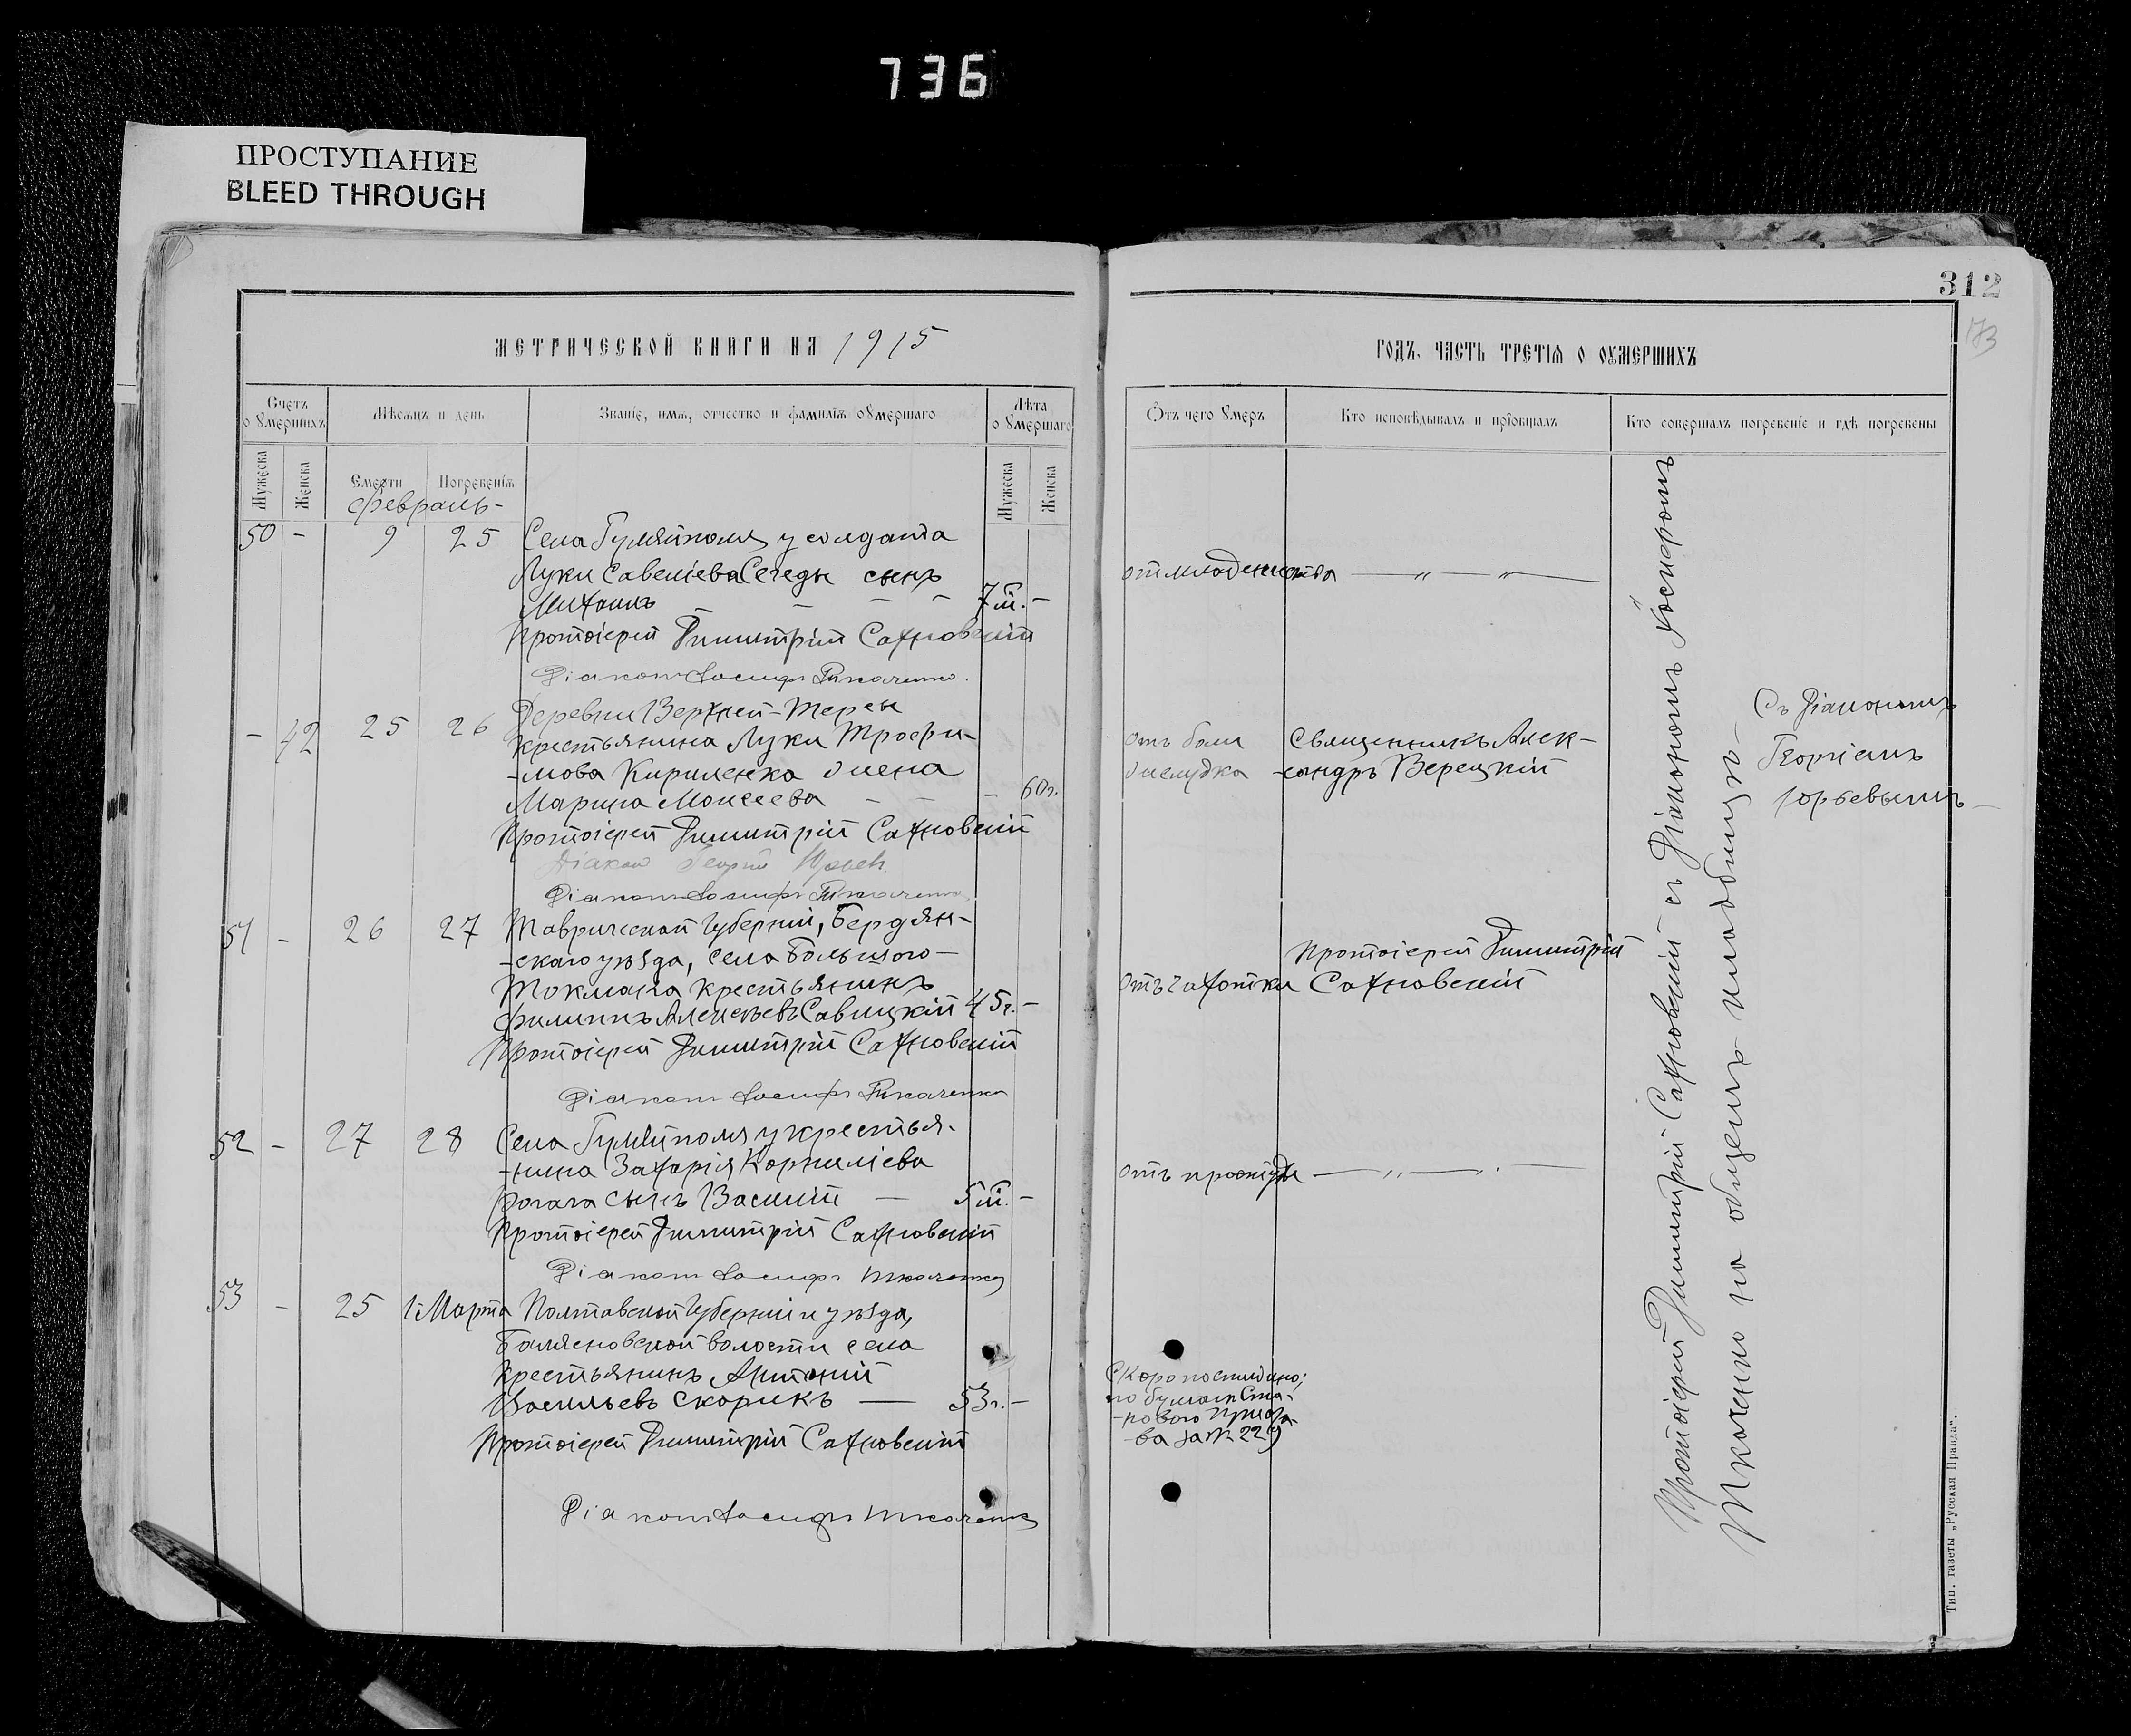 736
ПРОСТУПАНИЕ
BLEED THROUGH
312
173
МЕТРИЧЕСКОЙ КНИГИ НА 1915
ГОДЪ. ЧАСТЬ ТРЕТІѦ О ОУМЕРШИХЪ
Счетъ о Умершихъ
Мѣсяцъ и день
Званіе, имѧ, отчество и фамиліѧ оУмершаго
Лѣта о Умершаго
Ѿтъ чего Умеръ
Кто исповѣдывалъ и прїобщалъ
Кто совершалъ погребеніе и гдѣ погребены
Мужеска
Женска
Смерти
Погребеніѧ
Мужеска
Женска
Февраль-
50 - 9 25 Села Гуляйполя у солдата
Луки Савеліева Сегеды сынъ
Михаилъ - - - - 7 м. -
отъ младенчества — " — " —
Протоіерей Димитрій Сахновскій
Діаконъ Іосифъ Ткаченко.
- 42 25 26 Деревни Верхней-Терсы
крестьянина Луки Трофи-
-мова Кириленка жена
Марина Моисеева - - - 60 г.
отъ боли
желудка
Священникъ Алек-
-сандръ Верецкій
Протоіерей Димитрій Сахновскій
Діакон Георгій Юрьев
Діаконъ Іосифъ Ткаченко
51 - 26 27 Таврической губерніи, Бердян-
-скаго уѣзда, села Большого-
Токмака крестьянинъ
Филиппъ Алексѣевъ Савицкій 45 г. -
отъ чахотки
Протоіерей Димитрій
Сахновскій
Протоіерей Димитрій Сахновскій
Діаконъ Іосифъ Ткаченко
52 - 27 28 Села Гуляйполя у крестья-
-нина Захарія Корниліева
Рогача сынъ Василій — 5 м. -
отъ простуды — " — " —
Протоіерей Димитрій Сахновскій
Діаконъ Іосифъ Ткаченко
53 - 25 1 Марта Полтавской губерніи и уѣзда,
волости села
крестьянинъ Антоній
Васильевъ Скорикъ — 53 г. -
Скоропостижно;
по бумагѣ Ста-
-нового Приста-
-ва за № 229
Протоіерей Димитрій Сахновскій
Діаконъ Іосифъ Ткаченко
Протоіерей Димитрій Сахновскій съ Діакономъ Іосифомъ
Ткаченко на общемъ кладбищѣ-
Съ Діакономъ
Георгіемъ
Юрьевымъ-
Тип. газеты „Русская Правда".